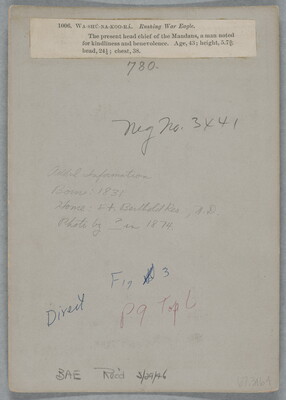 1006. WA-SHÚ-NA-KOO-RÁ. Rushing War Eagle.
The present head chief of the Mandans, a man noted
for kindliness and benevolence. Age, 43; height, 5.7¾
head, 24¼; chest, 38.
780.
Neg No. 3441
Add'l information
Born: 1830
Home: Ft. Berthold Res., N.D
Photo by 1874
Fig 3
Direct
P9 Top L
BAE Rec'd 3/29/26